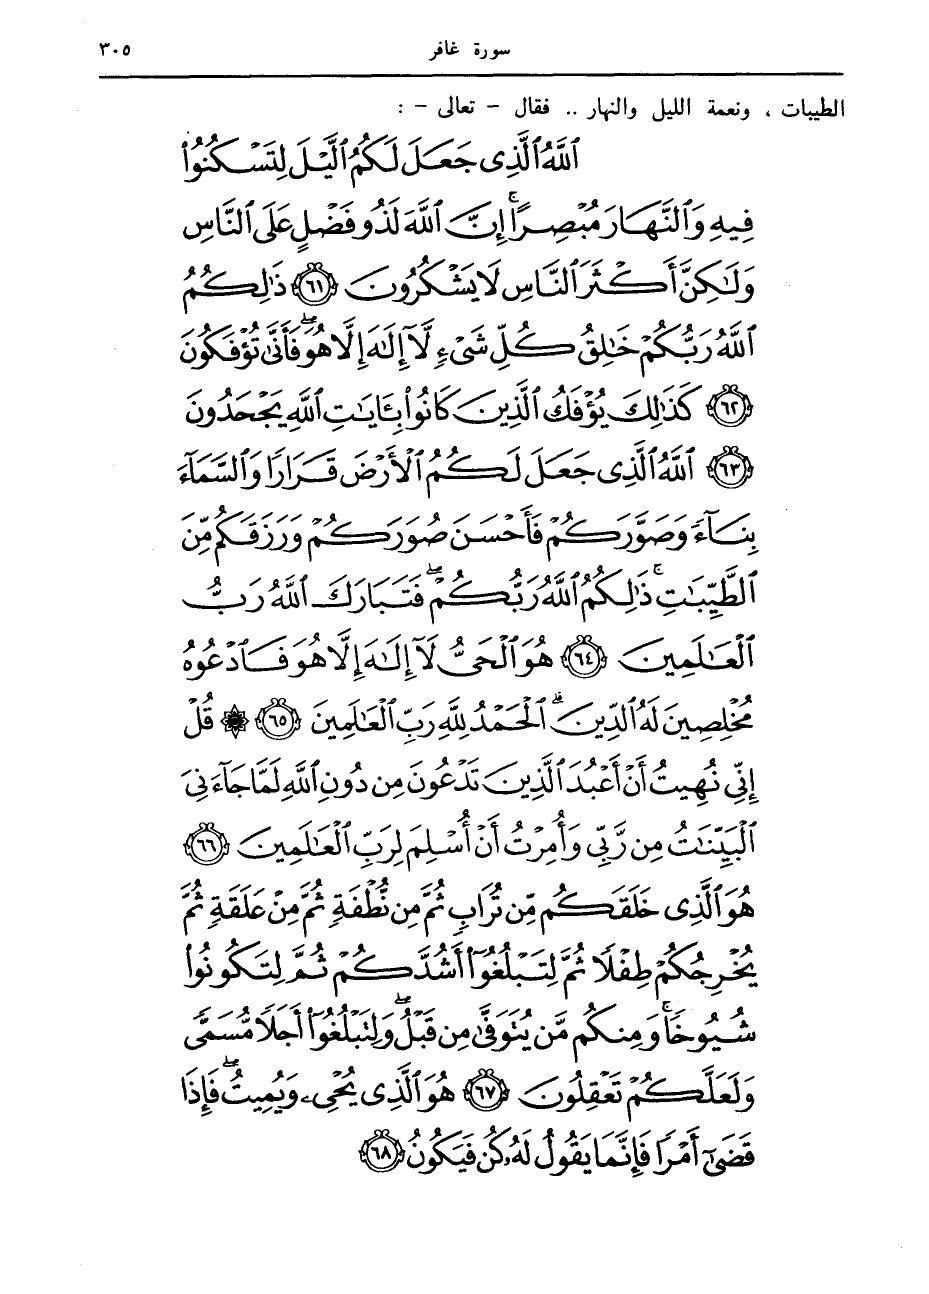 سورة غافر ٣٠٥
الطيبات ، ونعمة الليل والنهار .. فقال - تعالى - :
ٱللَّهُ ٱلَّذِى جَعَلَ لَكُمُ ٱلَّيْلَ لِتَسْكُنُوا۟
فِيهِ وَٱلنَّهَارَ مُبْصِرًا ۚ إِنَّ ٱللَّهَ لَذُو فَضْلٍ عَلَى ٱلنَّاسِ
وَلَٰكِنَّ أَكْثَرَ ٱلنَّاسِ لَا يَشْكُرُونَ ٦١ ذَٰلِكُمُ
ٱللَّهُ رَبُّكُمْ خَٰلِقُ كُلِّ شَىْءٍ لَّآ إِلَٰهَ إِلَّا هُوَ ۖ فَأَنَّىٰ تُؤْفَكُونَ
٦٢ كَذَٰلِكَ يُؤْفَكُ ٱلَّذِينَ كَانُوا۟ بِـَٔايَٰتِ ٱللَّهِ يَجْحَدُونَ
٦٣ ٱللَّهُ ٱلَّذِى جَعَلَ لَكُمُ ٱلْأَرْضَ قَرَارًا وَٱلسَّمَآءَ
بِنَآءً وَصَوَّرَكُمْ فَأَحْسَنَ صُوَرَكُمْ وَرَزَقَكُم مِّنَ
ٱلطَّيِّبَٰتِ ۚ ذَٰلِكُمُ ٱللَّهُ رَبُّكُمْ ۖ فَتَبَارَكَ ٱللَّهُ رَبُّ
ٱلْعَٰلَمِينَ ٦٤ هُوَ ٱلْحَىُّ لَآ إِلَٰهَ إِلَّا هُوَ فَٱدْعُوهُ
مُخْلِصِينَ لَهُ ٱلدِّينَ ۗ ٱلْحَمْدُ لِلَّهِ رَبِّ ٱلْعَٰلَمِينَ ٦٥ ۞ قُلْ
إِنِّى نُهِيتُ أَنْ أَعْبُدَ ٱلَّذِينَ تَدْعُونَ مِن دُونِ ٱللَّهِ لَمَّا جَآءَنِىَ
ٱلْبَيِّنَٰتُ مِن رَّبِّى وَأُمِرْتُ أَنْ أُسْلِمَ لِرَبِّ ٱلْعَٰلَمِينَ ٦٦
هُوَ ٱلَّذِى خَلَقَكُم مِّن تُرَابٍ ثُمَّ مِن نُّطْفَةٍ ثُمَّ مِنْ عَلَقَةٍ ثُمَّ
يُخْرِجُكُمْ طِفْلًا ثُمَّ لِتَبْلُغُوٓا۟ أَشُدَّكُمْ ثُمَّ لِتَكُونُوا۟
شُيُوخًا ۚ وَمِنكُم مَّن يُتَوَفَّىٰ مِن قَبْلُ ۖ وَلِتَبْلُغُوٓا۟ أَجَلًا مُّسَمًّى
وَلَعَلَّكُمْ تَعْقِلُونَ ٦٧ هُوَ ٱلَّذِى يُحْىِۦ وَيُمِيتُ ۖ فَإِذَا
قَضَىٰٓ أَمْرًا فَإِنَّمَا يَقُولُ لَهُۥ كُن فَيَكُونُ ٦٨